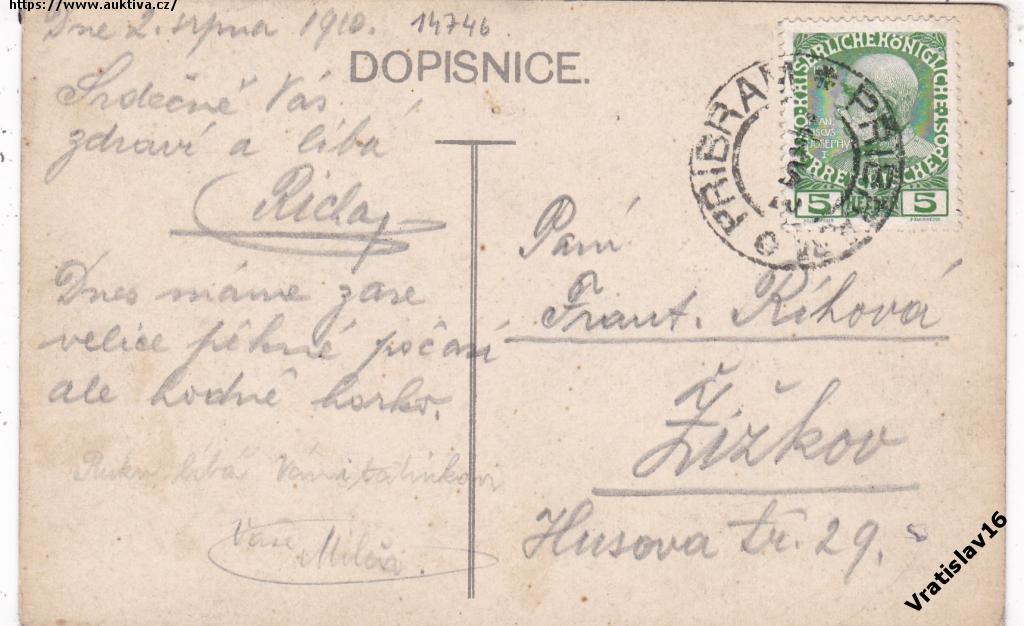 https://www.auktiva.cz/
Dne 2. srpna 1910.
14746
DOPISNICE.
Srdečně Vás
zdraví a líbá
Dnes máme zase
velice pěkné počasí
ale hodně horko.
Ruku líbá Vám i tatínkovi
Vaše
KAISERLICHE KÖNIGLICHE
ÖSTERREICHISCHE POST
5 5
PŘÍBRAM * PŘIBRAM
Paní
Frant. Říhová
Žižkov
Husova tř. 29.
Vratislav16